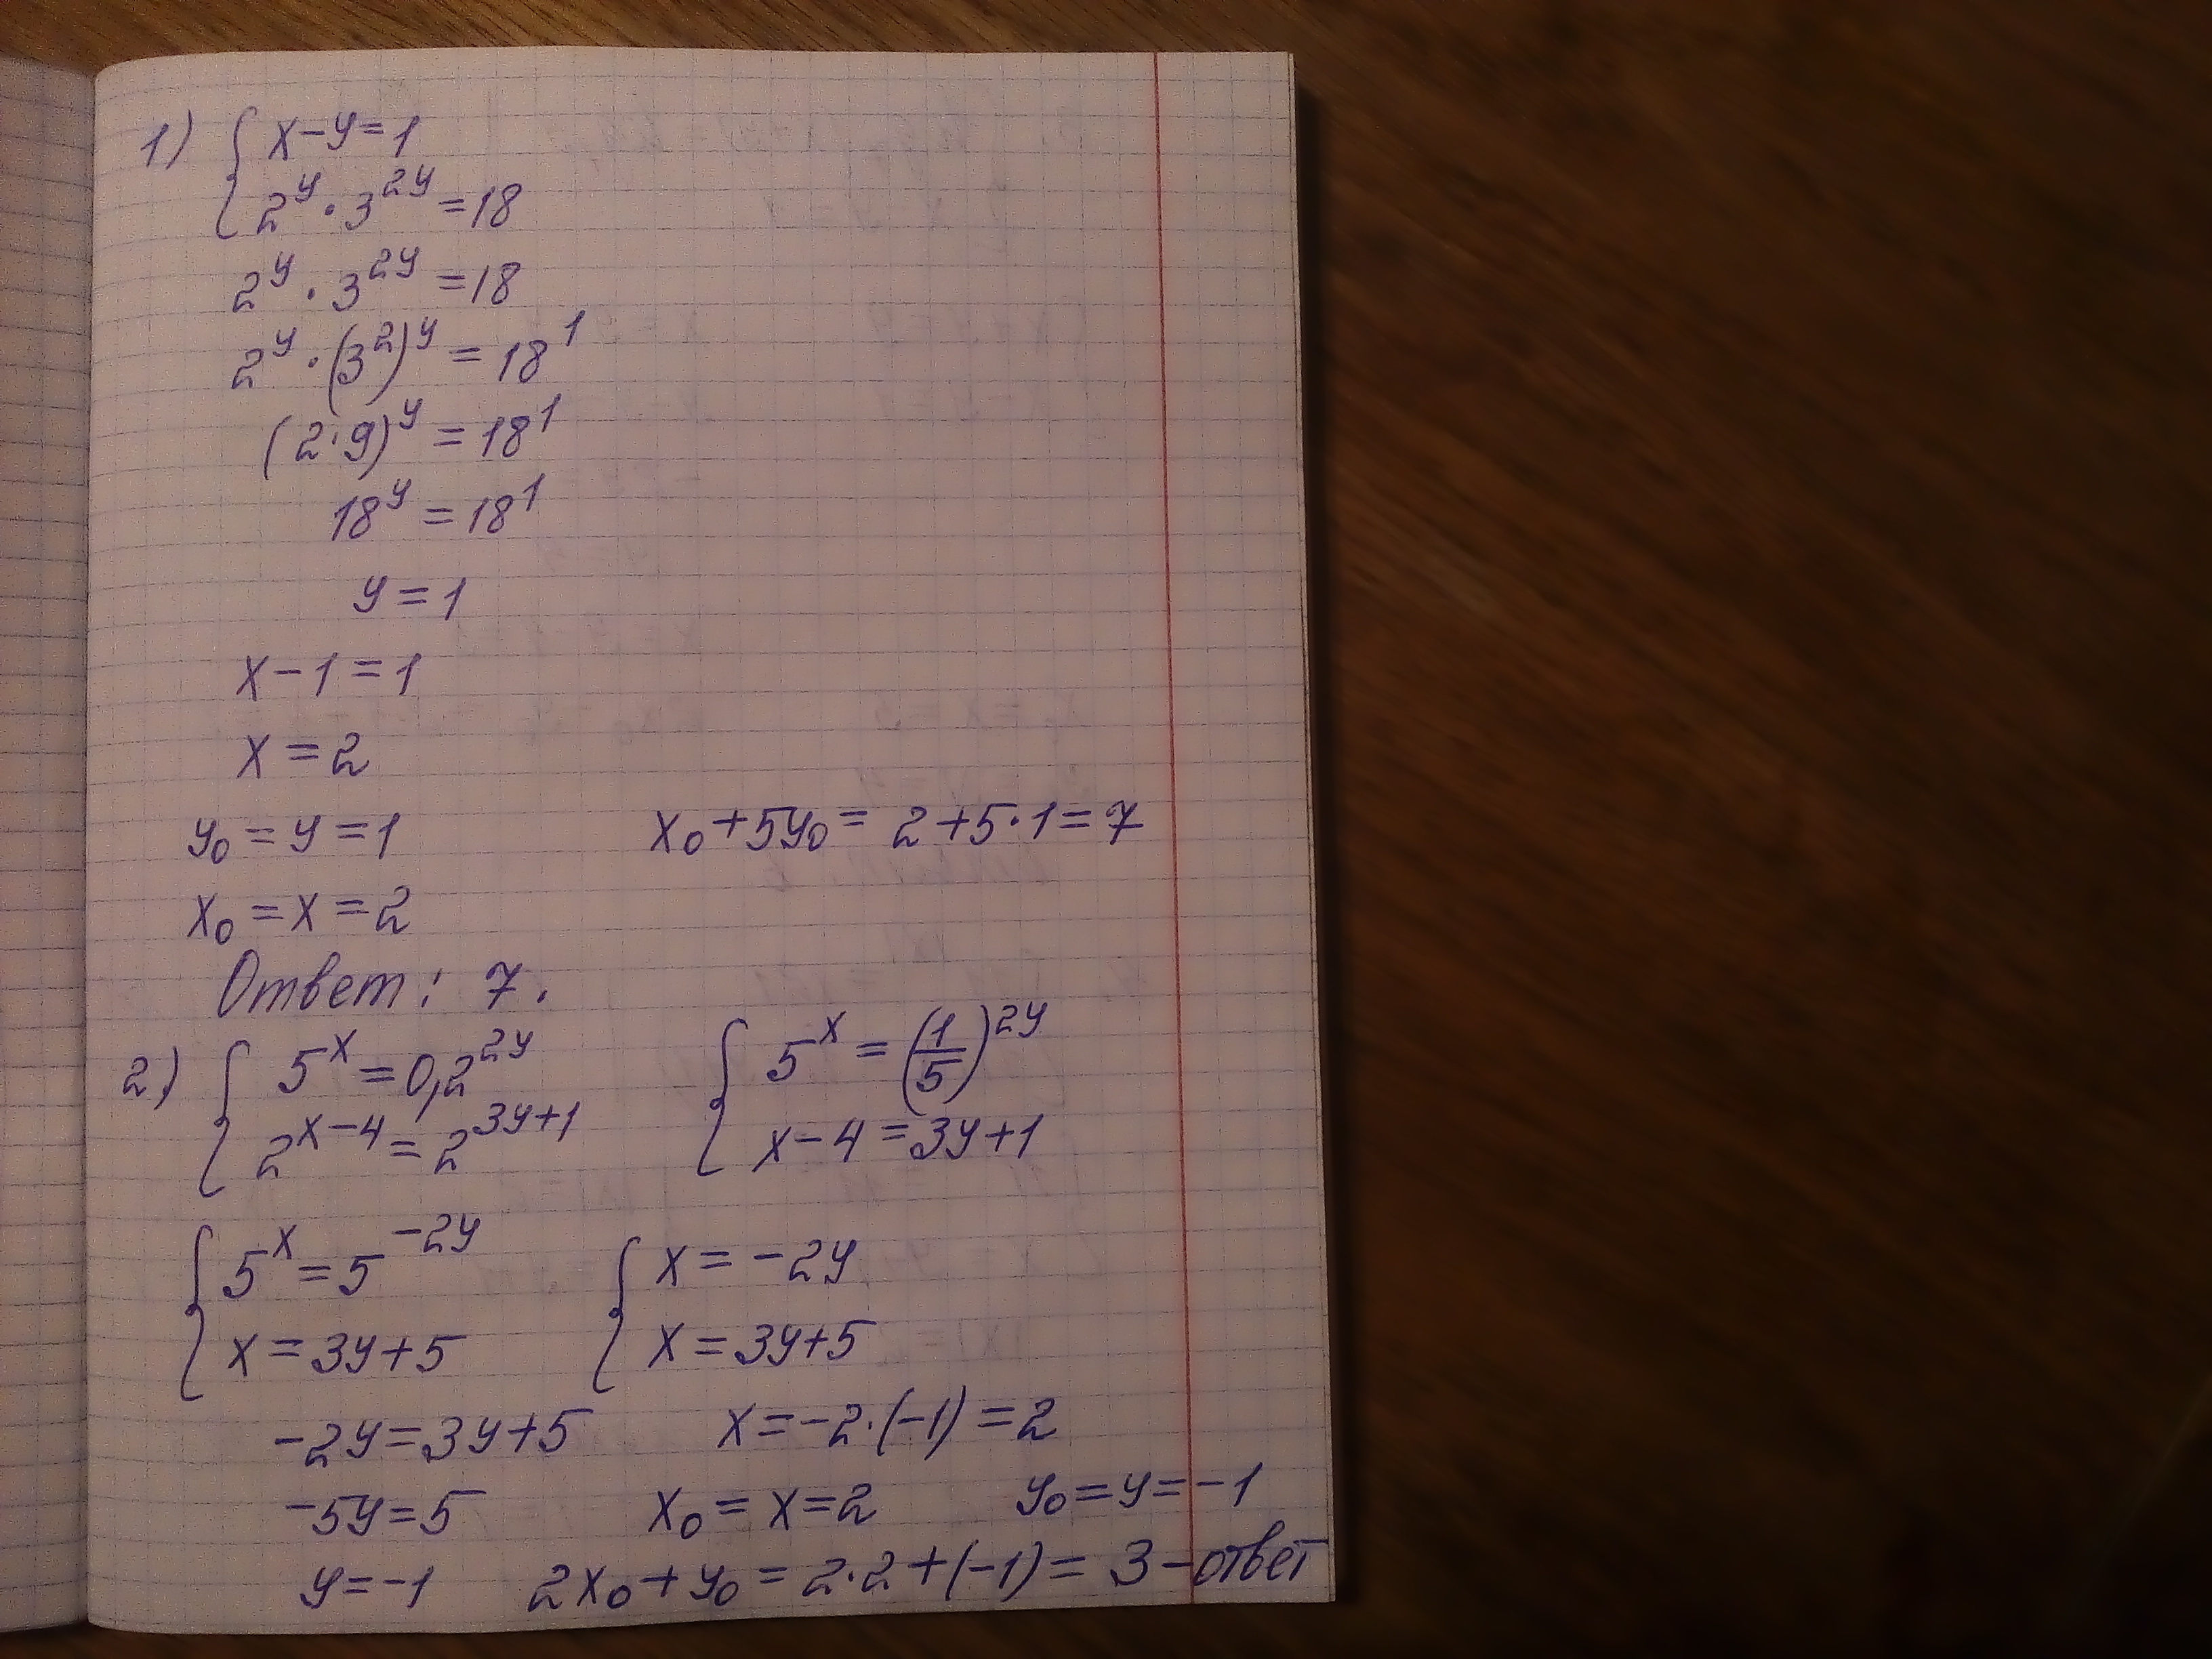 1) { x-y=1
2^y · 3^{2y} =18
2^y · 3^{2y} =18
2^y · (3^2)^y = 18^1
(2·9)^y = 18^1
18^y = 18^1
y=1
x-1=1
x=2
y₀=y=1 x₀+5y₀= 2+5·1=7
x₀=x=2
Ответ: 7.
2) { 5^x=0,2^{2y} { 5^x = (1/5)^{2y}
2^{x-4}=2^{3y+1} x-4=3y+1
{ 5^x=5^{-2y} { x=-2y
x=3y+5 x=3y+5
-2y=3y+5 x=-2·(-1)=2
-5y=5 x₀=x=2 y₀=y=-1
y=-1 2x₀+y₀=2·2+(-1)= 3-ответ